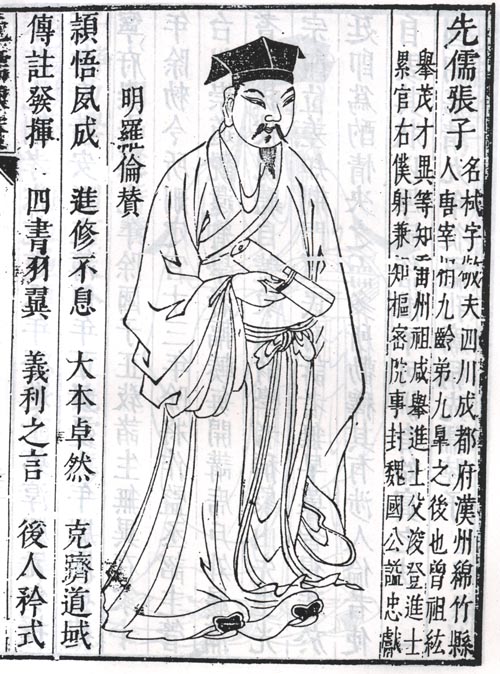 先儒張子
名栻字敬夫四川成都府漢州綿竹縣
人唐宰相九齡弟九臯之後也曾祖紘
舉茂才異等知雷州祖咸舉進士父浚登進士
累官右僕射兼知樞密院事封魏國公謚忠獻
明羅倫贊
穎悟夙成 進修不息 大本卓然 克躋道域
傳註發揮 四書羽翼 義利之言 後人矜式